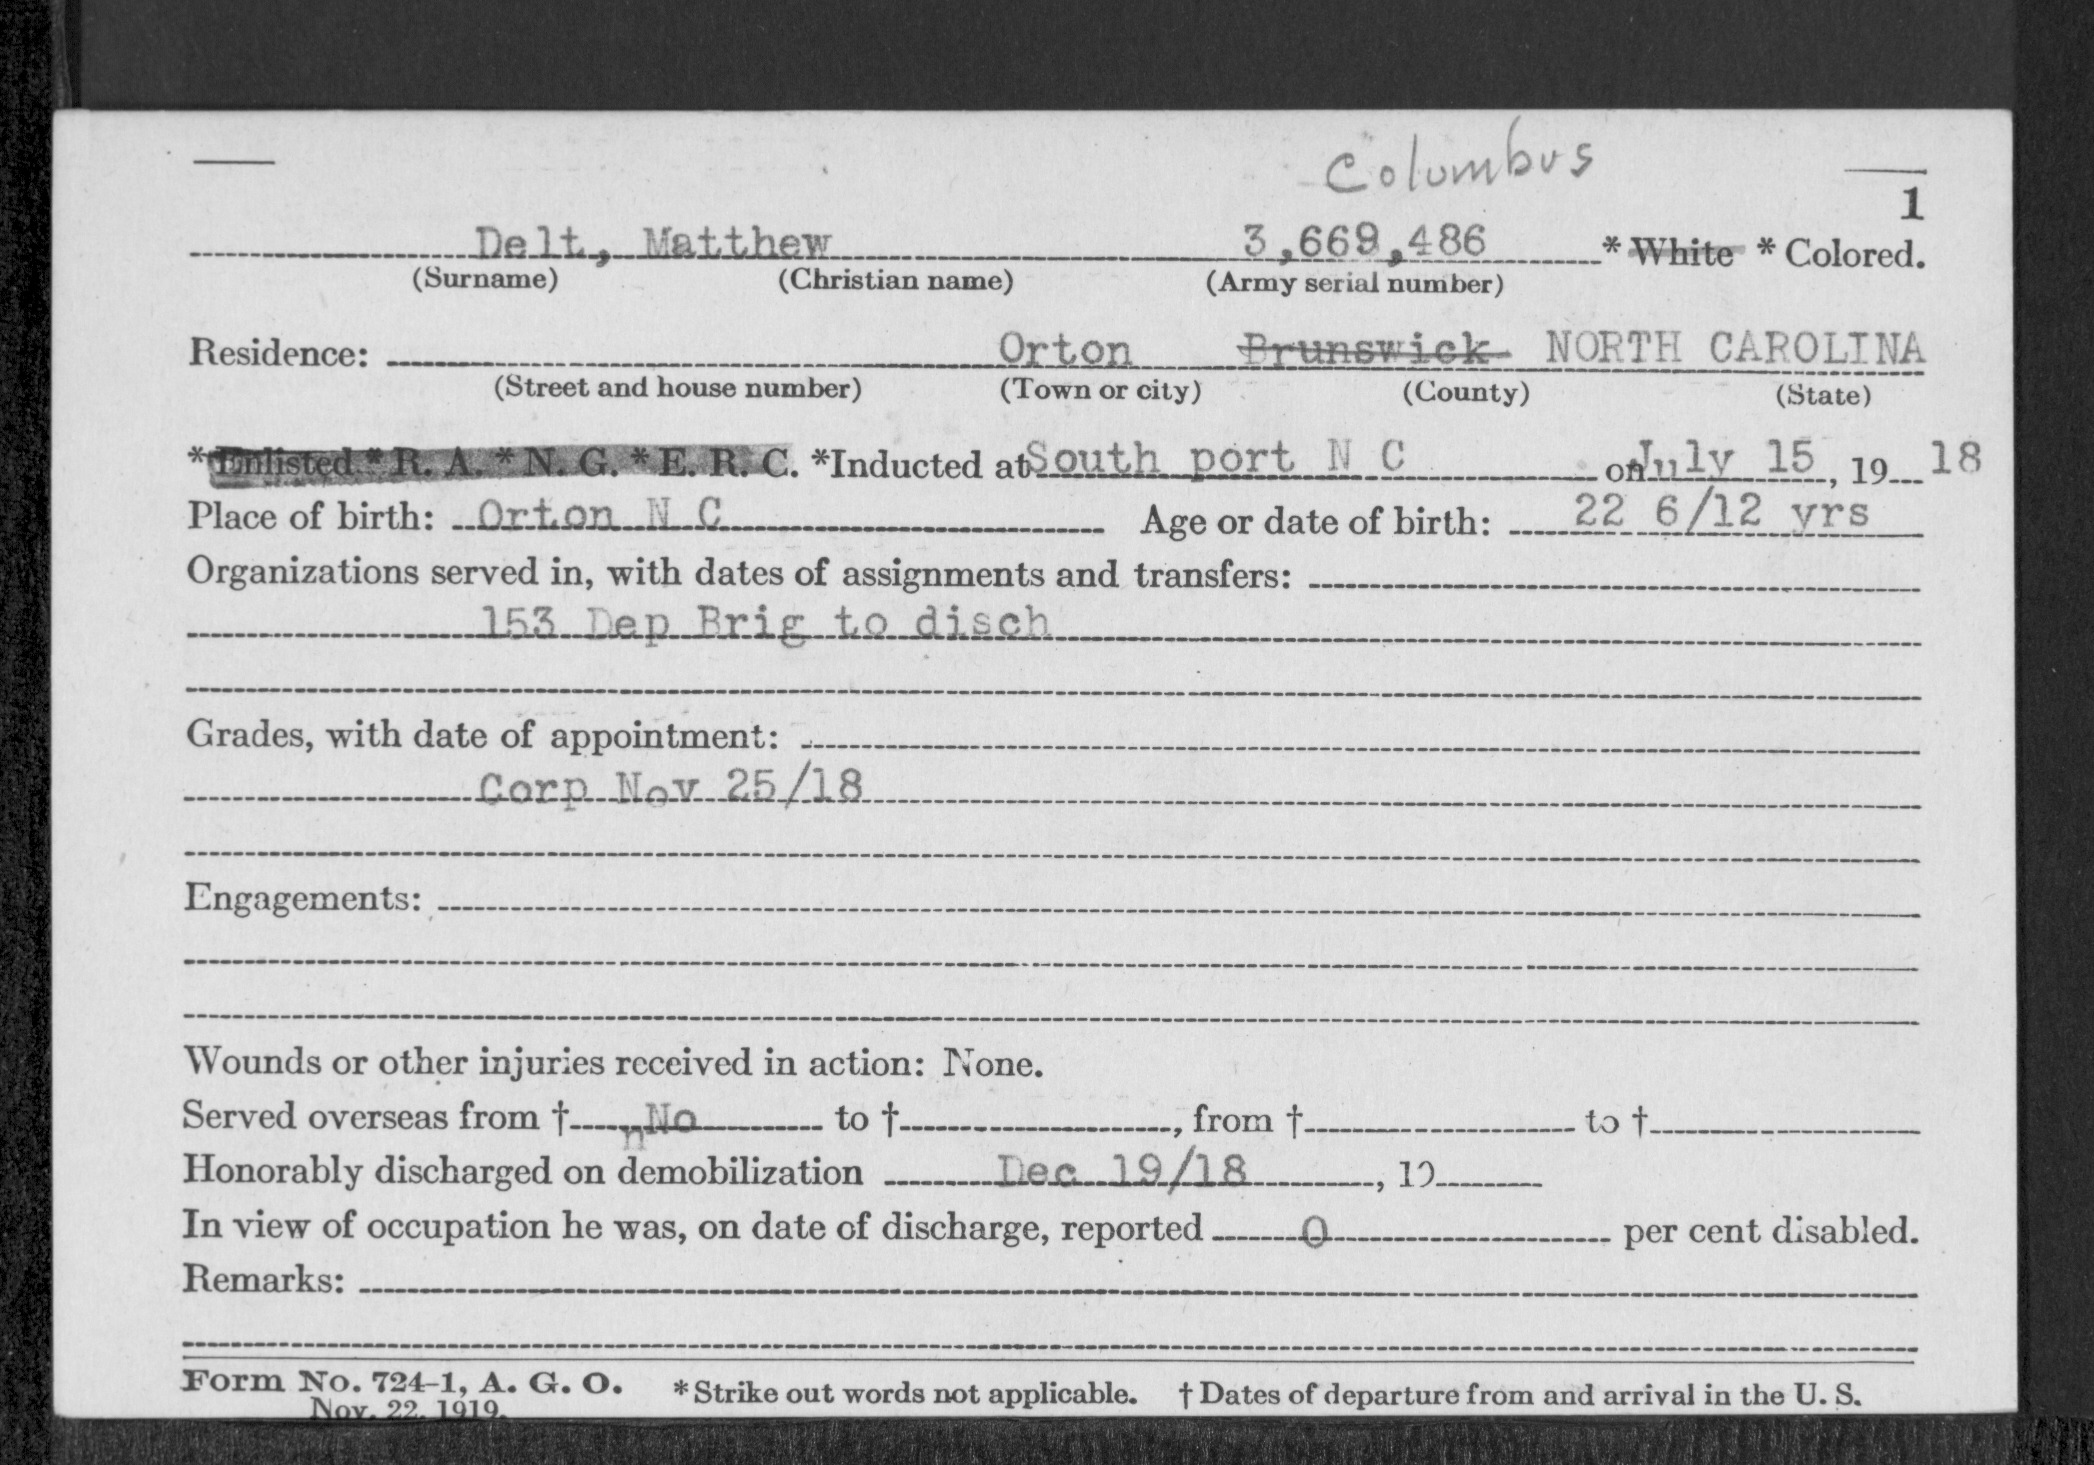 Columbus
1
Delt, Matthew 3,669,486 * White * Colored.
(Surname) (Christian name) (Army serial number)
Residence: Orton Brunswick NORTH CAROLINA
(Street and house number) (Town or city) (County) (State)
*Enlisted * R. A. * N. G. * E. R. C. *Inducted at South port N C on July 15, 19 18
Place of birth: Orton N C Age or date of birth: 22 6/12 yrs
Organizations served in, with dates of assignments and transfers:
153 Dep Brig to disch
Grades, with date of appointment:
Corp Nov 25/18
Engagements:
Wounds or other injuries received in action: None.
Served overseas from † No to †, from † to †
n
Honorably discharged on demobilization Dec 19/18, 19
In view of occupation he was, on date of discharge, reported 0 per cent disabled.
Remarks:
Form No. 724-1, A. G. O. * Strike out words not applicable. † Dates of departure from and arrival in the U. S.
Nov. 22, 1919.